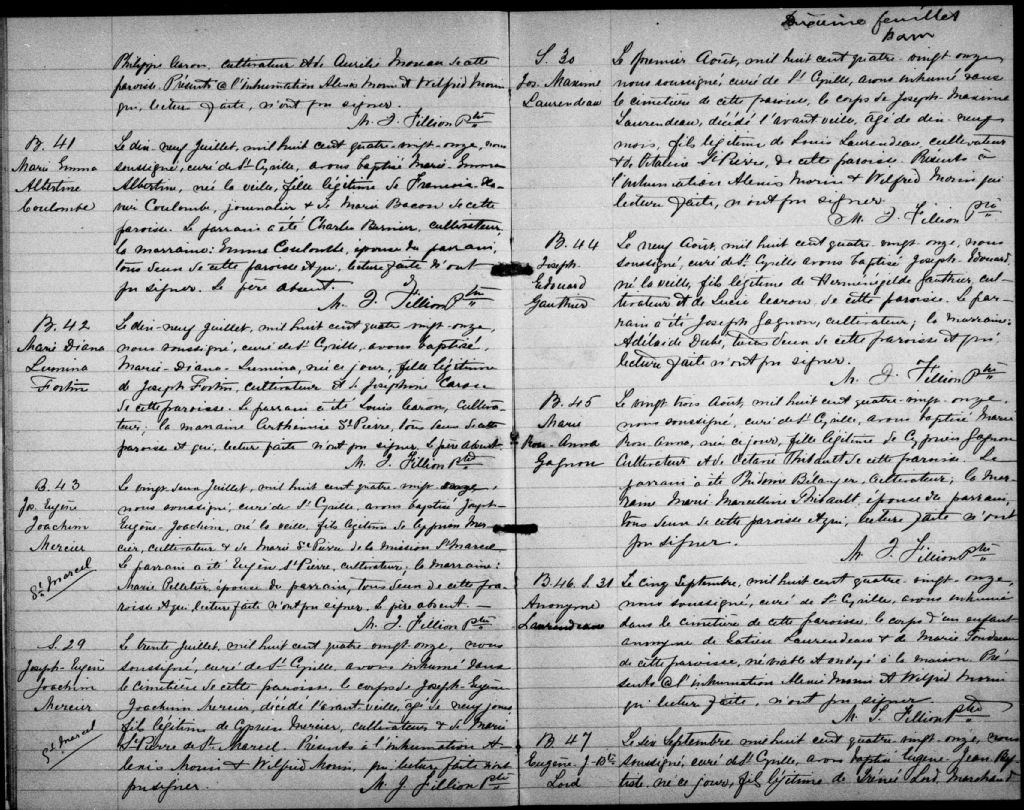 Philippe Caron, cultivateur & de Aurélie Moreau de cette
paroisse. Présents à l'inhumation Alexis Morin & Wilfred Morin
qui, lecture faite, n'ont pu signer.
M. J. Fillion Ptre
B. 41
Marie Emma
Albertine
Coulombe
Le dix-neuf Juillet, mil huit cent quatre-vingt-onze, nous
soussigné, curé de St Cyrille, avons baptisé Marie-Emma
Albertine, née la veille, fille légitime de François-Xa-
vier Coulombe, journalier & de Marie Bacon de cette
paroisse. Le parrain a été Charles Bernier, cultivateur,
la marraine: Emma Coulombe, épouse du parrain,
tous deux de cette paroisse & qui, lecture faite n'ont
pu signer. Le père absent.
M. J. Fillion Ptre
B. 42
Marie Diana
Lumina
Fortin
Le dix-neuf Juillet, mil huit cent quatre-vingt-onze,
nous soussigné, curé de St Cyrille, avons baptisé,
Marie-Diana-Lumina, née ce jour, fille légitime
de Joseph Fortin, cultivateur et de Joséphine Caron
de cette paroisse. Le parrain a été Louis Caron, cultiva-
teur; la marraine St Pierre, tous deux de cette
paroisse & qui, lecture faite n'ont pu signer. Le père absent.
M. J. Fillion Ptre
B. 43
Jos. Eugène
Joachim
Mercier
St Marcel
Le vingt-deux Juillet, mil huit cent quatre-vingt-onze,
nous soussigné, curé de St Cyrille, avons baptisé Joseph-
Eugène-Joachim, né la veille, fils légitime de Cyprien Mer-
cier, cultivateur & de Marie St Pierre de la mission St Marcel.
Le parrain a été: Eugène St Pierre, cultivateur, la marraine:
Marie Pelletier, épouse du parrain, tous deux de cette pa-
roisse & qui, lecture faite n'ont pu signer. Le père absent.
M. J. Fillion Ptre
S. 29
Joseph-Eugène
Joachim
Mercier
St Marcel
Le trente Juillet, mil huit cent quatre-vingt-onze, nous
soussigné, curé de St Cyrille, avons inhumé dans
le cimetière de cette paroisse, le corps de Joseph-Eugène
Joachim Mercier, décédé l'avant veille, âgé de neuf jours,
fils légitime de Cyprien Mercier, cultivateur & de Marie
St Pierre de St Marcel. Présents à l'inhumation A-
lexis Morin & Wilfred Morin, qui, lecture faite n'ont
pu signer.
M. J. Fillion Ptre
feuillet
S. 30
Jos. Maxime
Laurendeau
Le premier Août, mil huit cent quatre-vingt-onze,
nous soussigné, curé de St Cyrille, avons inhumé dans
le cimetière de cette paroisse, le corps de Joseph-Maxime
Laurendeau, décédé l'avant veille, âgé de dix-neuf
mois, fils légitime de Louis Laurendeau, cultivateur
& de Vitaline St Pierre, de cette paroisse. Présents à
l'inhumation Alexis Morin & Wilfred Morin qui
lecture faite, n'ont pu signer.
M. J. Fillion Ptre
B. 44
Joseph
Edouard
Gauthier
Le neuf Août, mil huit cent quatre-vingt-onze, nous
soussigné, curé de St Cyrille avons baptisé Joseph-Edouard
né la veille, fils légitime de Herménégilde Gauthier, cul-
tivateur & de Lucie Caron, de cette paroisse. Le par-
rain a été Joseph Gagnon, cultivateur; la marraine:
Adélaïde Dubé, tous deux de cette paroisse & qui
lecture faite n'ont pu signer.
M. J. Fillion Ptre
B. 45
Marie
Rose-Anna
Gagnon
Le vingt trois Août, mil huit cent quatre-vingt-onze,
nous soussigné, curé de St Cyrille, avons baptisé Marie
Rose Anna, née ce jour, fille légitime de Cyprien Gagnon
Cultivateur & de Octavie Thibault de cette paroisse. Le
parrain a été Belanger, Cultivateur; la Mar-
raine Marie Marcelline Thibault, épouse du parrain,
tous deux de cette paroisse & qui, lecture faite n'ont
pu signer.
M. J. Fillion Ptre
B. 46. S. 31
Anonyme
Laurendeau
Le cinq Septembre, mil huit cent quatre-vingt-onze,
nous soussigné, curé de St Cyrille, avons inhumé
dans le cimetière de cette paroisse, le corps d'un enfant
anonyme de Laurendeau & de Marie
de cette paroisse, né viable & ondoyé à la maison. Pré-
sents à l'inhumation Alexis Morin & Wilfred Morin
qui lecture faite, n'ont pu signer
M. J. Fillion Ptre
B. 47
Eugène J-Bte
Lord
Le six Septembre mil huit cent quatre-vingt-onze, nous
soussigné, curé de St Cyrille, avons baptisé Eugène-Jean Bap-
tiste, né ce jour, fils légitime de Irénée Lord, Marchand